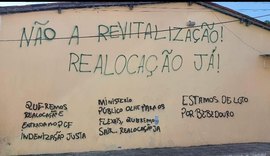 NÃO A REVITALIZAÇÃO!
REALOCAÇÃO JÁ!
QUEREMOS
REALOCAÇÃO E
ENTRADA NO PCF
INDENIZAÇÃO JUSTA
MINISTÉRIO
PÚBLICO OLHE PARA OS
FLEXAIS, QUEREMOS
SAIR. REALOCAÇÃO JÁ
ESTAMOS DE LUTO
POR BEBEDOURO